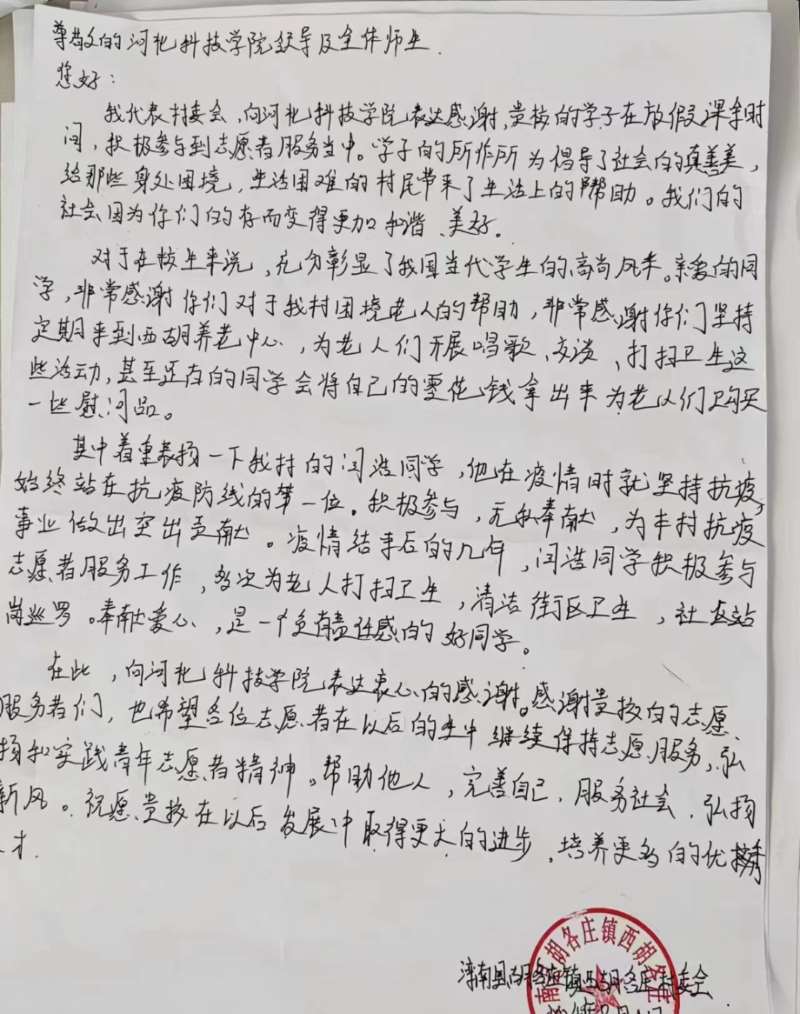 尊敬的河北科技学院领导及全体师生.
您好：
我代表村委会，向河北科技学院表达感谢，贵校的学子在放假课余时
间，积极参与到志愿者服务当中。学子的所作所为倡导了社会的真善美，
给那些身处困境，生活困难的村民带来了生活上的帮助。我们的
社会因为你们的存而变得更加和谐、美好.
对于在校生来说，充分彰显了我国当代学生的高尚风采。亲爱的同
学，非常感谢你们对于我村困境老人的帮助，非常感谢你们坚持
定期来到西胡养老中心，为老人们开展唱歌、交谈、打扫卫生这
些活动，甚至还有的同学会将自己的零花钱拿出来为老人们购买
一些慰问品。
其中着重表扬一下我村的闫浩同学，他在疫情时就坚持抗疫，
始终站在抗疫防线的第一位。积极参与，无私奉献，为本村抗疫
事业做出突出贡献。疫情结束后的几年，闫浩同学积极参与
志愿者服务工作，多次为老人打扫卫生，清洁街区卫生，社区站
岗巡罗。奉献爱心，是一个负有责任感的好同学。
在此，向河北科技学院表达衷心的感谢。感谢贵校的志愿
服务者们，也希望各位志愿者在以后的生中继续保持志愿服务，弘
扬和实践青年志愿者精神。帮助他人，完善自己，服务社会，弘扬
新风。祝愿贵校在以后发展中取得更大的进步，培养更多的优秀
才.
滦南县胡各庄镇西胡各庄村委会
南 胡各庄镇西胡各庄